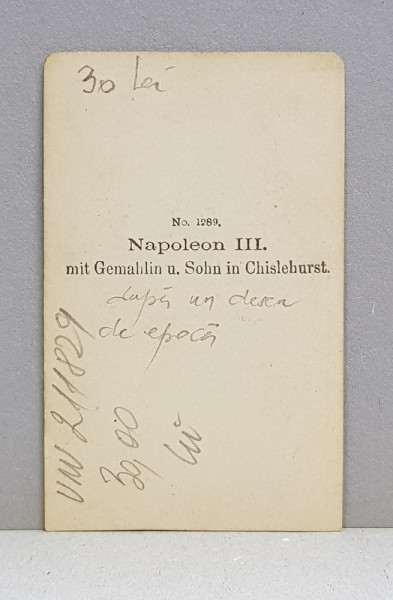 30 lei
No. 1289.
Napoleon III.
mit Gemahlin u. Sohn in Chislehurst.
după un desen
de epocă
VW 211829
30,00
lei